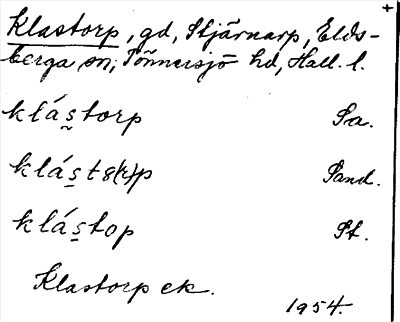 Klastorp, gd, Stjärnarp, Elds-
berga sn, Tönnersjö hd, Hall. l.
klás̰torp Sa.
klás̱t8(r)p Sand.
klás̱top St.
Klastorp ek.
1954.